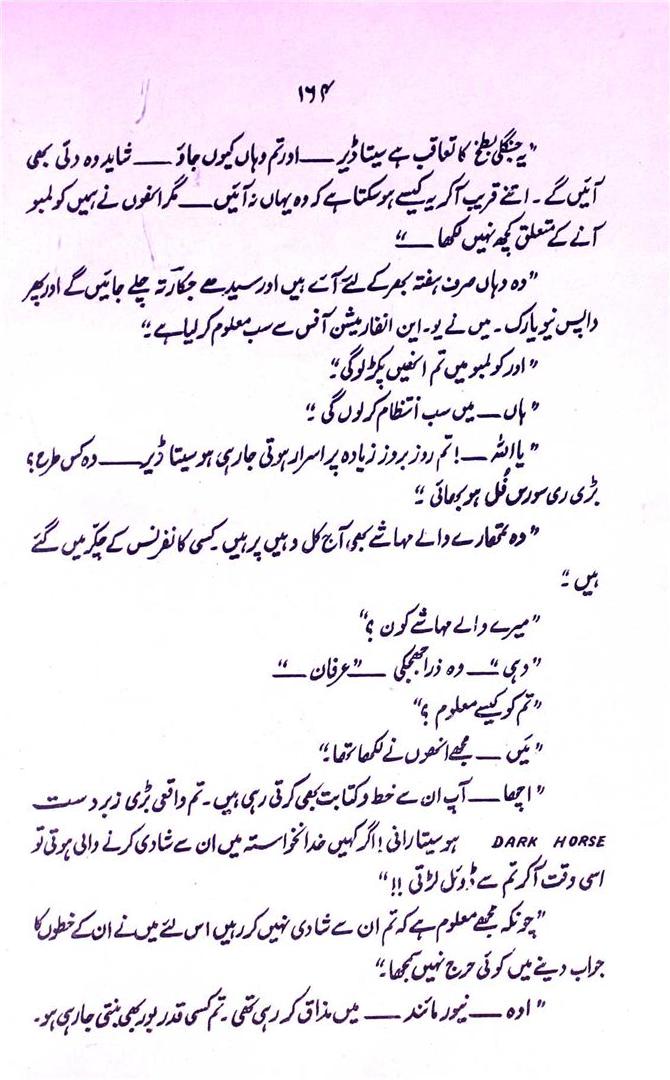 ۱۶۴
”یہ جنگلی بطخ کا تعاقب ہے سیتا ڈیر ــــ اور تم وہاں کیوں جاؤ ــــ شاید وہ دلی بھی
آئیں گے ۔ اتنے قریب آکر یہ کیسے ہو سکتا ہے کہ وہ یہاں نہ آئیں ــــ مگر انھوں نے ہمیں کولمبو
آنے کے متعلق کچھ نہیں لکھا ــــ “
”وہ وہاں صرف ہفتہ بھر کے لئے آئے ہیں اور سیدھے جکارتہ چلے جائیں گے اور پھر
واپس نیویارک ۔ میں نے یو۔ این انفارمیشن آفس سے سب معلوم کر لیا ہے ۔“
”اور کولمبو میں تم انھیں پکڑ لوگی ۔“
”ہاں ــــ میں سب انتظام کر لوں گی ۔“
”یا اللہ ــــ ! تم روز بروز زیادہ پر اسرار ہوتی جا رہی ہو سیتا ڈیر ــــ وہ کس طرح ؟
بڑی ری سورس فُل ہو بھائی ۔“
”وہ تمھارے والے مہاشے بھی آج کل وہیں پر ہیں ۔ کسی کانفرنس کے چکّر میں گئے
ہیں ۔“
”میرے والے مہاشے کون ؟“
”وہی “ ــــ وہ ذرا جھجکی ــــ ”عرفان ــــ “
”تم کو کیسے معلوم ؟“
”میں ــــ مجھے انھوں نے لکھا تھا ۔“
”اچھا ــــ آپ ان سے خط و کتابت بھی کرتی رہی ہیں ۔ تم واقعی بڑی زبردست
DARK HORSE ہو سیتا رانی ! اگر کہیں خدانخواستہ میں ان سے شادی کرنے والی ہوتی تو
اسی وقت آکر تم سے ڈوئل لڑتی !!“
”چونکہ مجھے معلوم ہے کہ تم ان سے شادی نہیں کر رہیں اس لئے میں نے ان کے خطوں کا
جواب دینے میں کوئی حرج نہیں سمجھا ۔“
”اوہ ــــ نیور مائنڈ ــــ میں مذاق کر رہی تھی ۔ تم کسی قدر بور بھی بنتی جا رہی ہو ۔